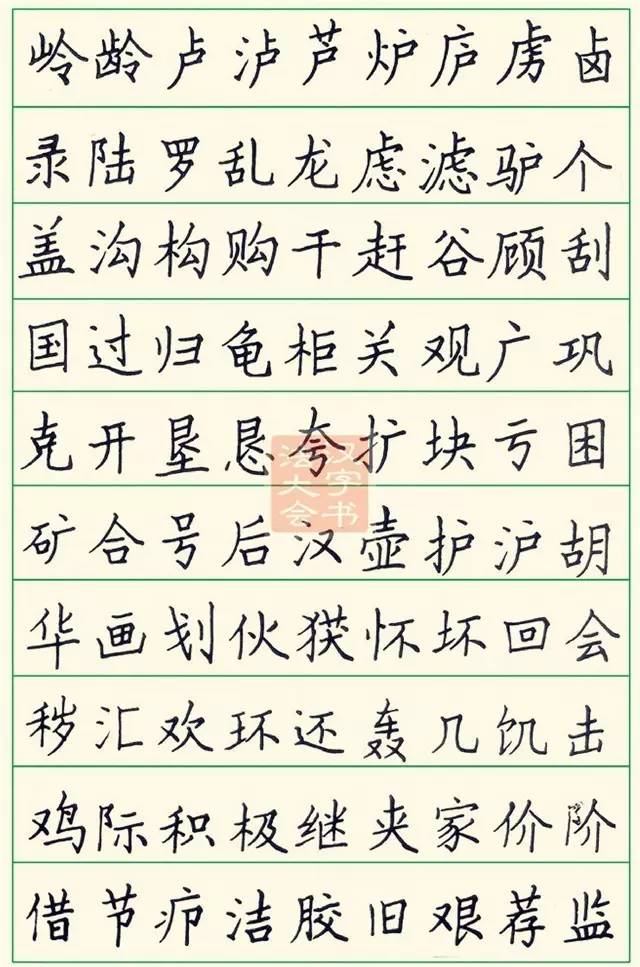 岭龄卢泸芦炉庐虏卤
录陆罗乱龙虑滤驴个
盖沟构购干赶谷顾刮
国过归龟柜关观广巩
克开垦恳夸扩块亏困
汉字书法大会
矿合号后汉壶护沪胡
华画划伙获怀坏回会
秽汇欢环还轰几饥击
鸡际积极继夹家价阶
借节疖洁胶旧艰荐监